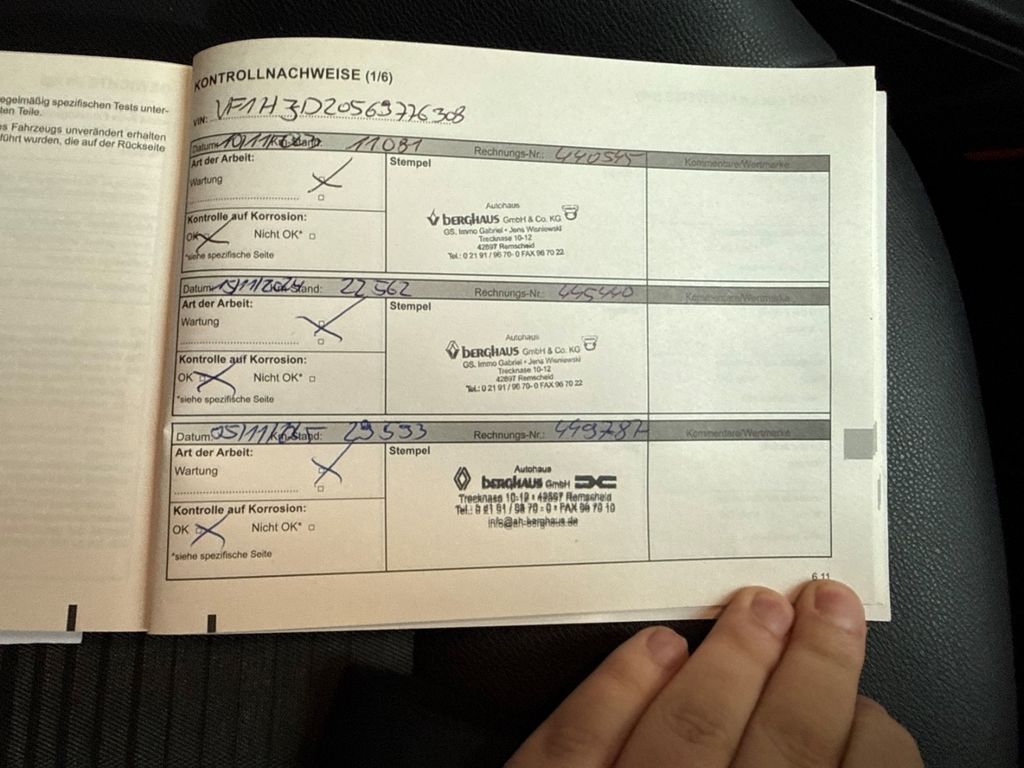 egelmäßig spezifischen Tests unter-
ten Teile.
s Fahrzeugs unverändert erhalten
führt wurden, die auf der Rückseite
KONTROLLNACHWEISE (1/6)
VIN: VF1H3D20569776308
Datum: 10/11/ Km-Stand: 11081 Rechnungs-Nr.: 440545 Kommentare/Wertmarke
Art der Arbeit:
Stempel
Wartung
Kontrolle auf Korrosion:
OK Nicht OK*
*siehe spezifische Seite
Autohaus
BERGHAUS GmbH & Co. KG
GS. Immo Gabriel • Jens Wisniewski
Trecknase 10-12
42897 Remscheid
Tel.: 0 21 91 / 96 70- 0 FAX 96 70 22
Datum: 15/11/2024 Km-Stand: 22562 Rechnungs-Nr.: 445440 Kommentare/Wertmarke
Art der Arbeit:
Stempel
Wartung
Kontrolle auf Korrosion:
OK Nicht OK*
*siehe spezifische Seite
Autohaus
BERGHAUS GmbH & Co. KG
GS. Immo Gabriel • Jens Wisniewski
Trecknase 10-12
42897 Remscheid
Tel.: 0 21 91 / 96 70- 0 FAX 96 70 22
Datum: 05/11/2025 Km-Stand: 29593 Rechnungs-Nr.: 449787 Kommentare/Wertmarke
Art der Arbeit:
Stempel
Wartung
Kontrolle auf Korrosion:
OK Nicht OK*
*siehe spezifische Seite
Autohaus
BERGHAUS GmbH
Trecknase 10-12 • 42897 Remscheid
Tel.: 0 21 91 / 96 70 - 0 • FAX 96 70 10
info@ah-berghaus.de
6.11